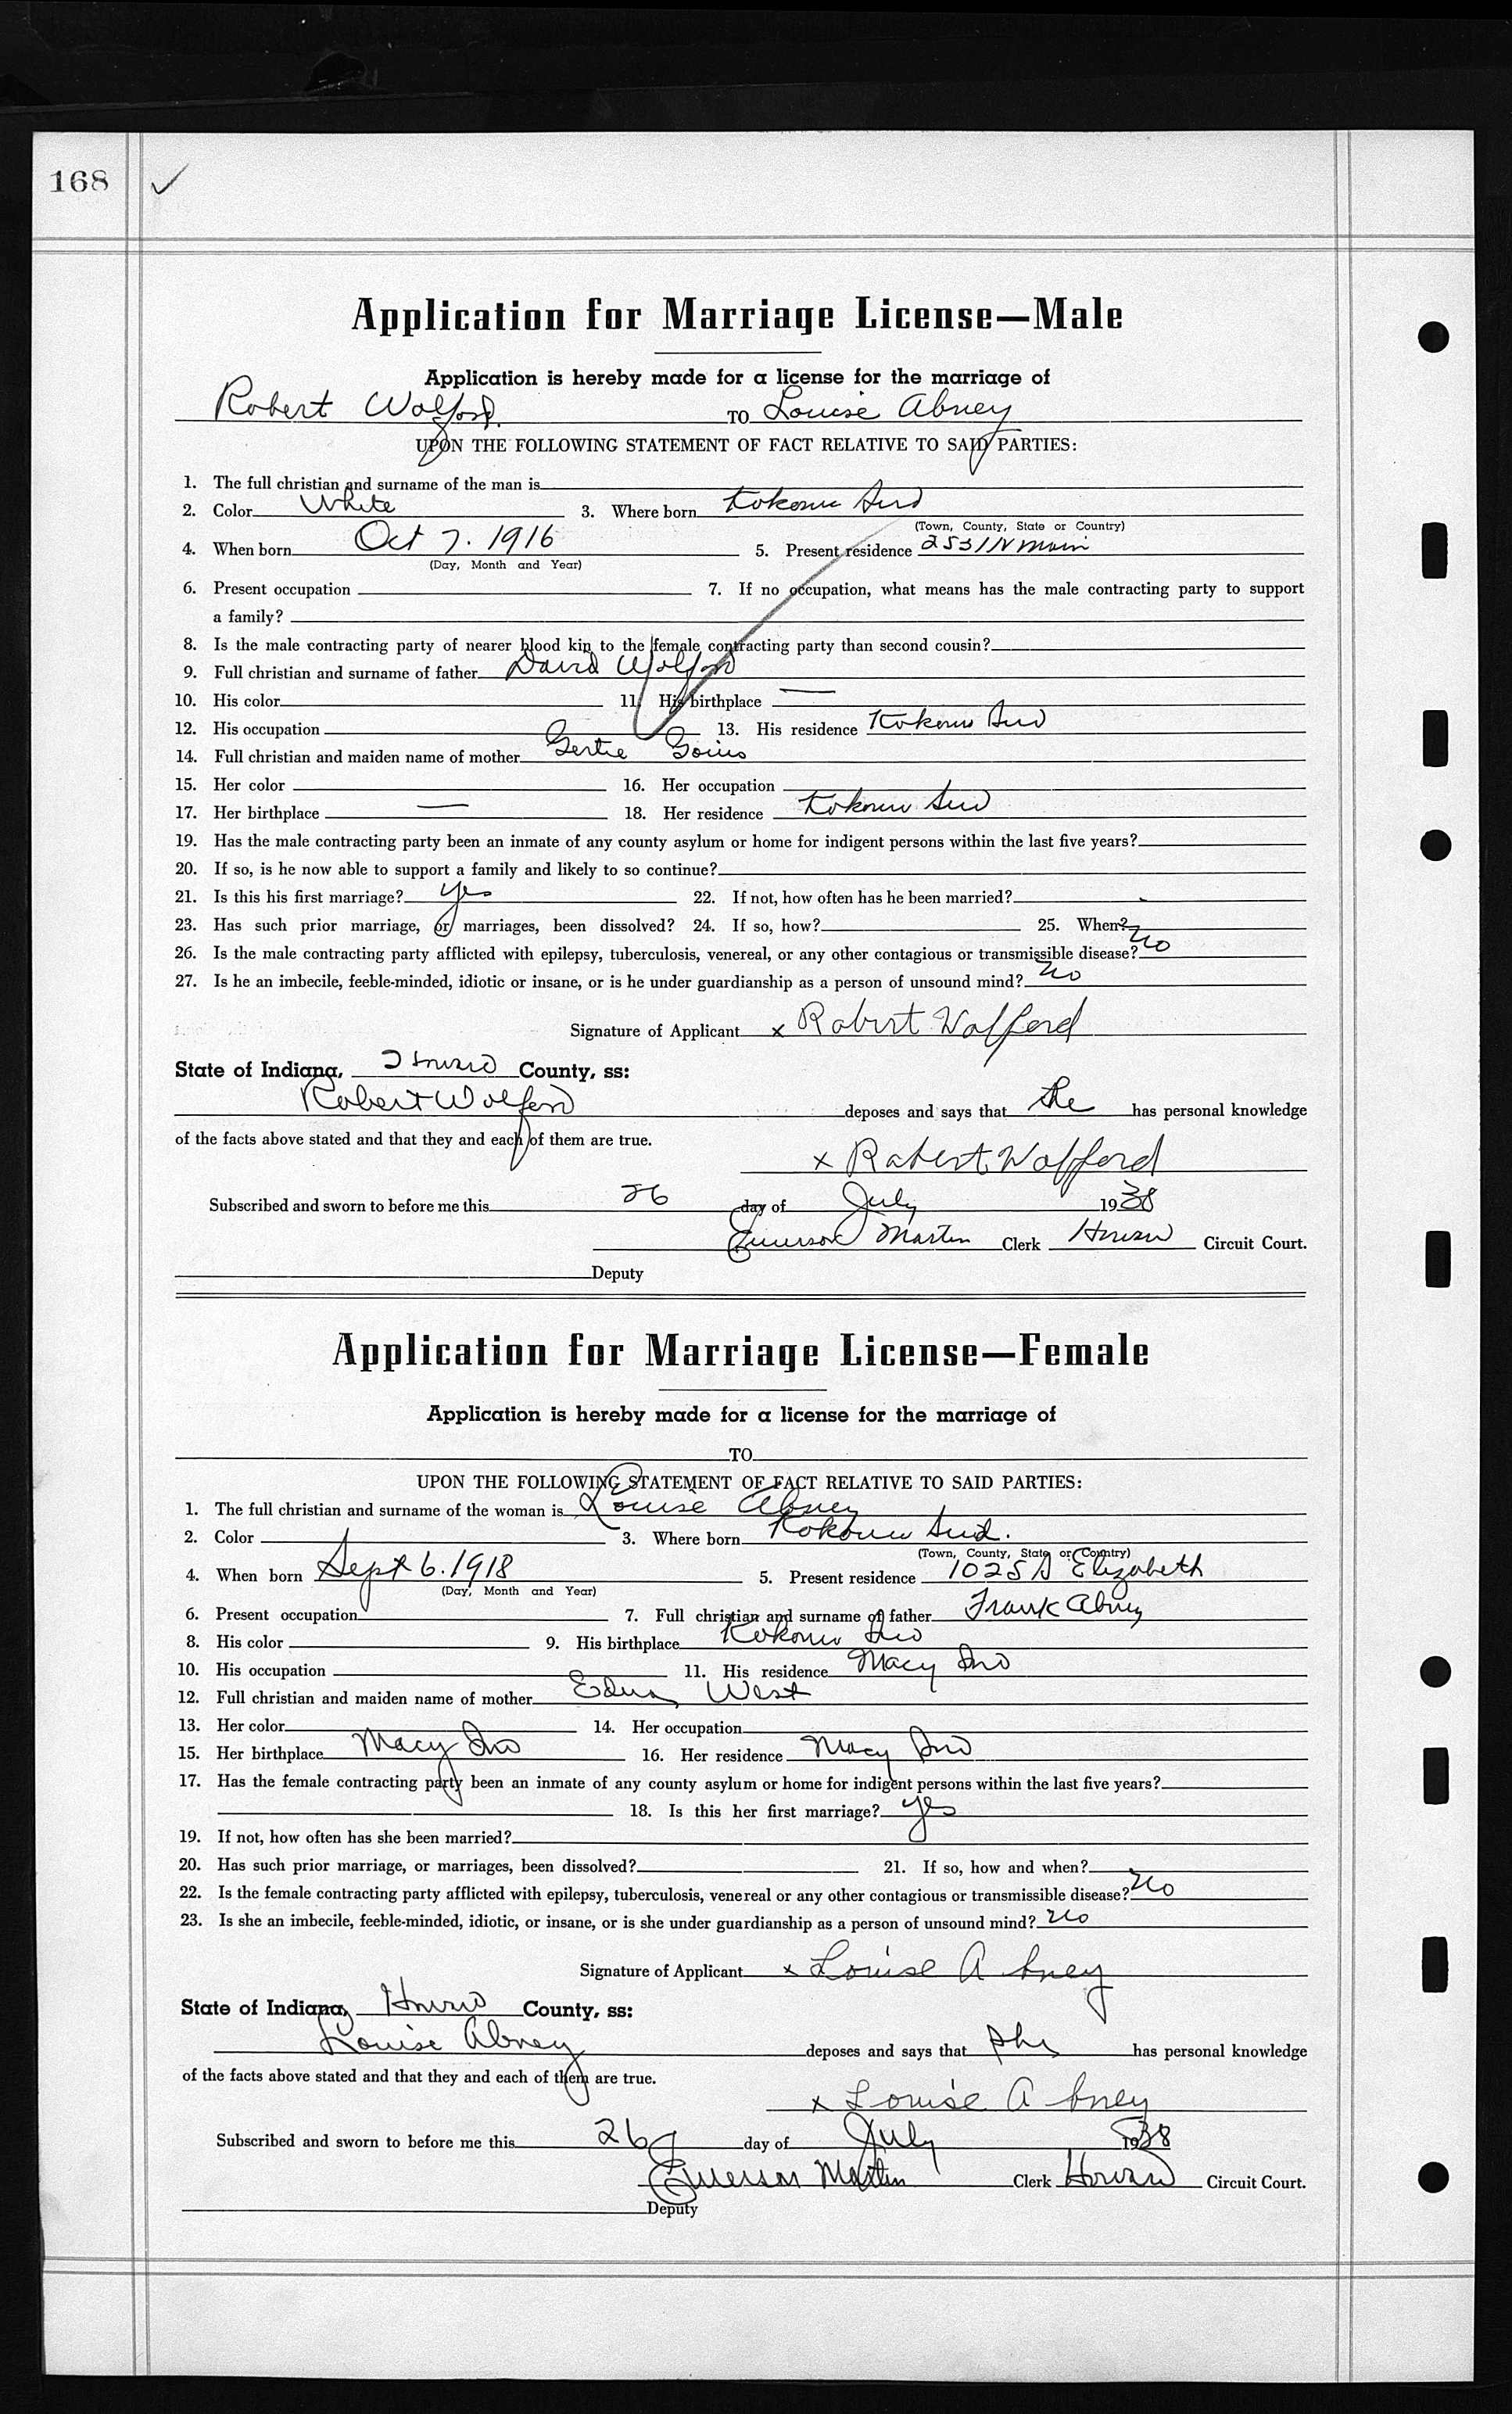 168 ✓
Application for Marriage License—Male
Application is hereby made for a license for the marriage of
Robert Wolford TO Louise Abney
UPON THE FOLLOWING STATEMENT OF FACT RELATIVE TO SAID PARTIES:
1. The full christian and surname of the man is
2. Color White 3. Where born Kokomo Ind
(Town, County, State or Country)
4. When born Oct 7. 1916 5. Present residence 2531 N Main
(Day, Month and Year)
6. Present occupation 7. If no occupation, what means has the male contracting party to support
a family?
8. Is the male contracting party of nearer blood kin to the female contracting party than second cousin?
9. Full christian and surname of father David Wolford
10. His color 11. His birthplace —
12. His occupation 13. His residence Kokomo Ind
14. Full christian and maiden name of mother Gertie Goins
15. Her color 16. Her occupation
17. Her birthplace — 18. Her residence Kokomo Ind
19. Has the male contracting party been an inmate of any county asylum or home for indigent persons within the last five years?
20. If so, is he now able to support a family and likely to so continue?
21. Is this his first marriage? yes 22. If not, how often has he been married?
23. Has such prior marriage, or marriages, been dissolved? 24. If so, how? 25. When?
26. Is the male contracting party afflicted with epilepsy, tuberculosis, venereal, or any other contagious or transmissible disease? no
27. Is he an imbecile, feeble-minded, idiotic or insane, or is he under guardianship as a person of unsound mind? no
Signature of Applicant x Robert Wolfford
State of Indiana, Howard County, ss:
Robert Wolford deposes and says that he has personal knowledge
of the facts above stated and that they and each of them are true.
x Robert Wolfford
Subscribed and sworn to before me this 26 day of July 1938
Emerson Martin Clerk Howard Circuit Court.
Deputy
Application for Marriage License—Female
Application is hereby made for a license for the marriage of
TO
UPON THE FOLLOWING STATEMENT OF FACT RELATIVE TO SAID PARTIES:
1. The full christian and surname of the woman is Louise Abney
2. Color 3. Where born Kokomo Ind.
(Town, County, State or Country)
4. When born Sept 6. 1918 5. Present residence 1025 S Elizabeth
(Day, Month and Year)
6. Present occupation 7. Full christian and surname of father Frank Abney
8. His color 9. His birthplace Kokomo Ind
10. His occupation 11. His residence Macy Ind
12. Full christian and maiden name of mother Edna West
13. Her color 14. Her occupation
15. Her birthplace Macy Ind 16. Her residence Macy Ind
17. Has the female contracting party been an inmate of any county asylum or home for indigent persons within the last five years?
18. Is this her first marriage? yes
19. If not, how often has she been married?
20. Has such prior marriage, or marriages, been dissolved? 21. If so, how and when?
22. Is the female contracting party afflicted with epilepsy, tuberculosis, venereal or any other contagious or transmissible disease? no
23. Is she an imbecile, feeble-minded, idiotic, or insane, or is she under guardianship as a person of unsound mind? no
Signature of Applicant x Louise Abney
State of Indiana, Howard County, ss:
Louise Abney deposes and says that she has personal knowledge
of the facts above stated and that they and each of them are true.
x Louise Abney
Subscribed and sworn to before me this 26 day of July 1938
Emerson Martin Clerk Howard Circuit Court.
Deputy